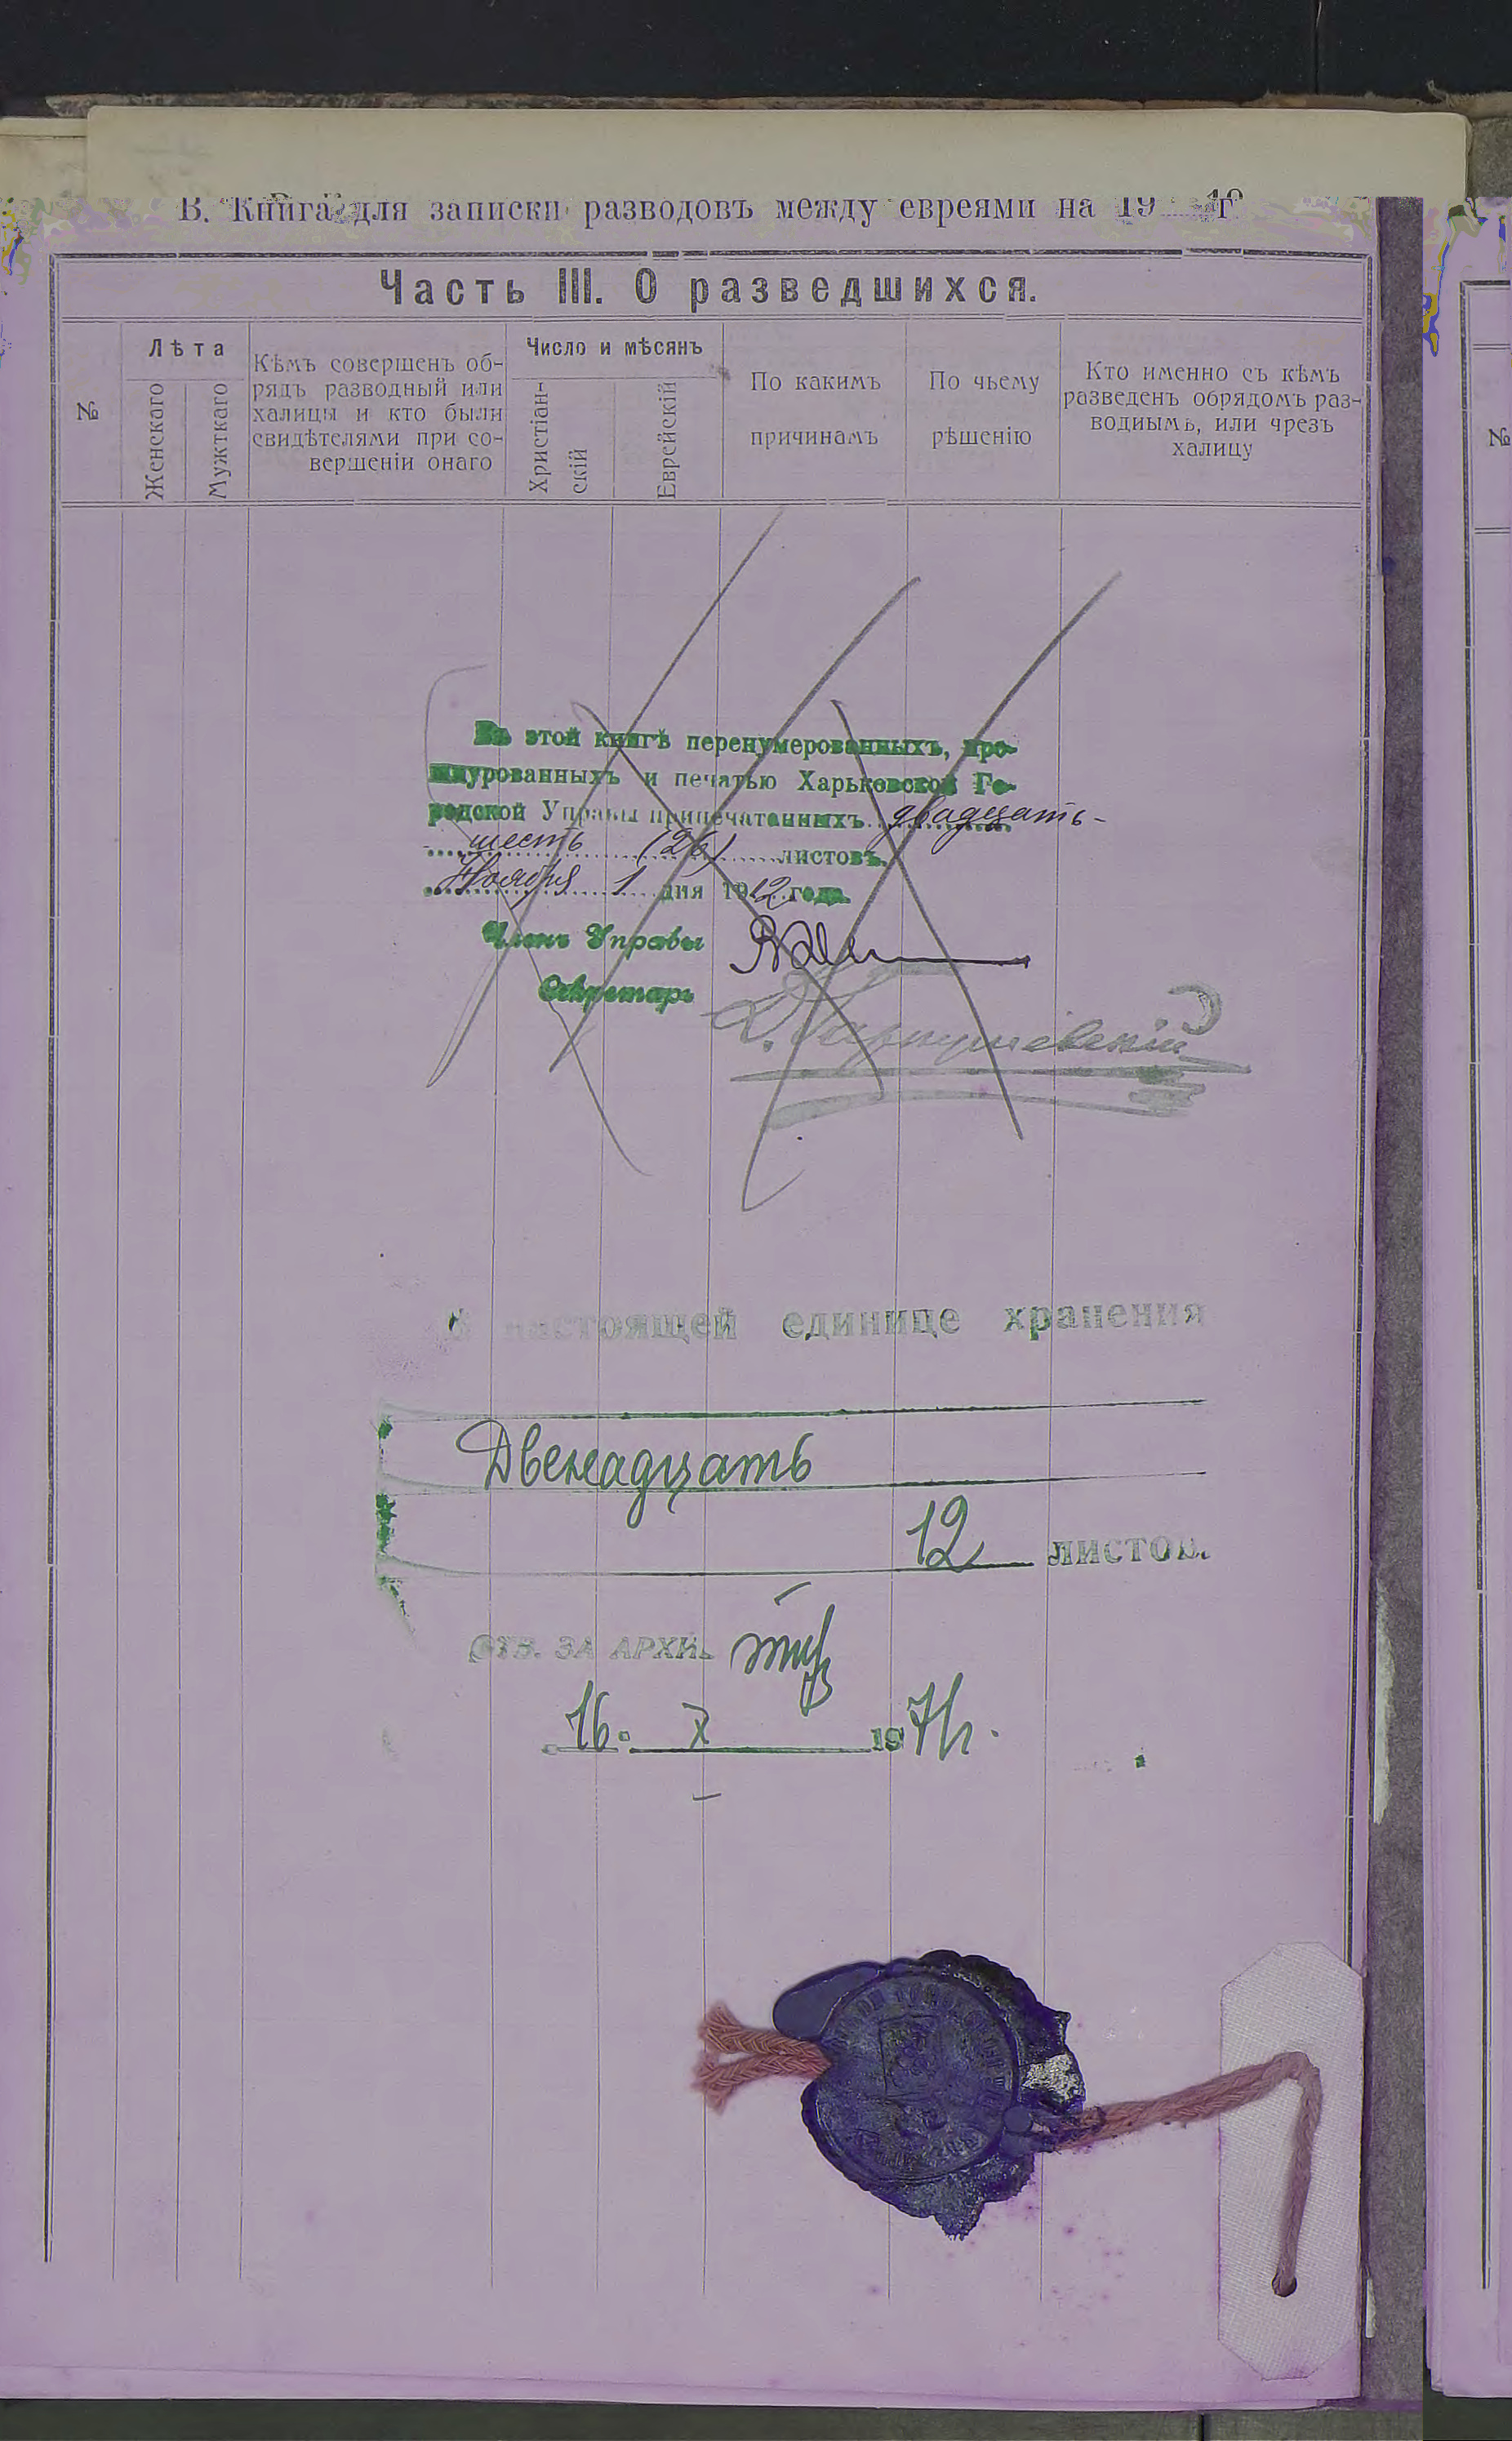 В. Книга для записки разводовъ между евреями на 19 г
Часть III. О разведшихся.
№
Лѣта
Женскаго
Мужткаго
Кѣмъ совершенъ об-
рядъ разводный или
халицы и кто были
свидѣтелями при со-
вершеніи онаго
Число и мѣсянъ
Христіан-
скій
Еврейскій
По какимъ
причинамъ
По чьему
рѣшенію
Кто именно съ кѣмъ
разведенъ обрядомъ раз-
водиымъ, или чрезъ
халицу
№
Въ этой книгѣ перенумерованныхъ, про-
шнурованныхъ и печатью Харьковской Го-
родской Управы припечатанныхъ двадцать-
шесть (26) листовъ.
Ноября 1 дня 1912 года.
Членъ Управы
Секретарь
В настоящей единице хранения
Двенадцать
12 листов.
ОТВ. ЗА АРХИВ
16. X 1971г.